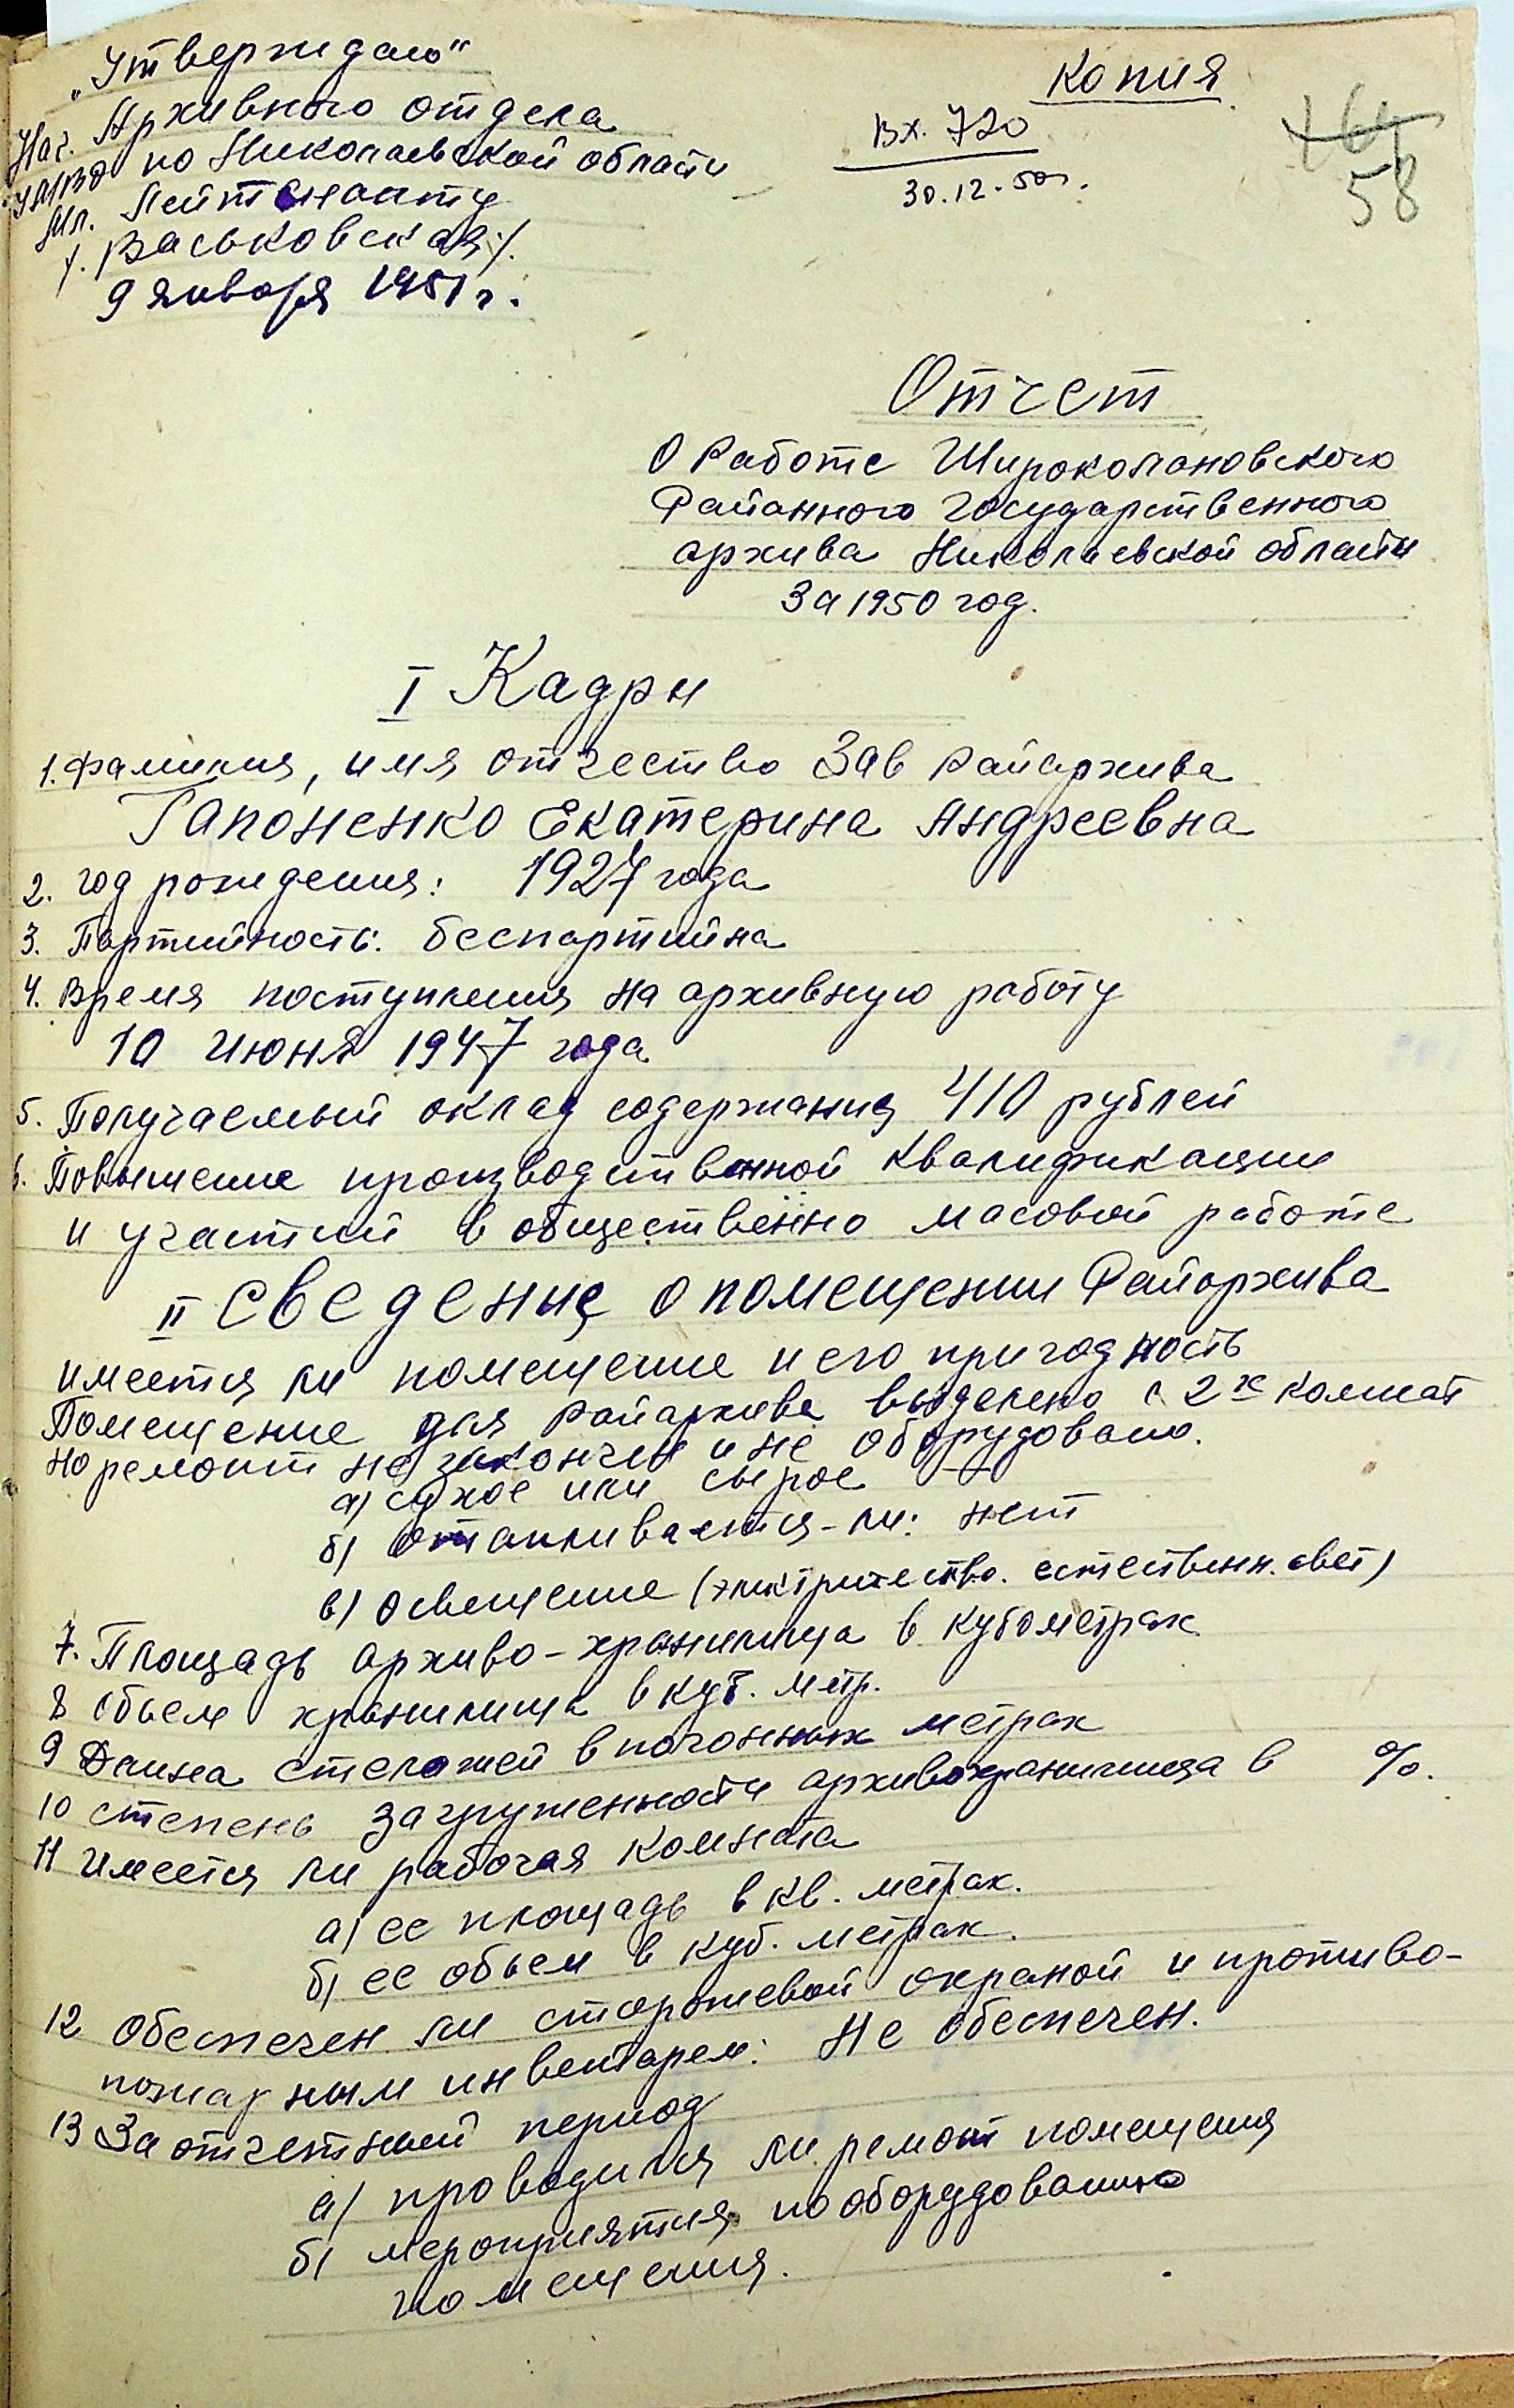 „Утверждаю"
Нач. Архивного отдела
УМВД по Николаевской области
Мл. Лейтенант
/. Васьковская /.
9 января 1951 г.
Копия
Вх. 720
30.12.50 г.
58
Отчет
О работе Широколановского
Районного Государственного
архива Николаевской области
За 1950 год.
I Кадры
1. Фамилия, имя отчество Зав Райархива
Гапоненко Екатерина Андреевна
2. год рождения: 1927 года
3. Партийность: беспартийна
4. Время поступления на архивную работу
10 июня 1947 года
5. Получаемый оклад содержания 410 рублей
6. Повышение производственной квалификации
и участий в общественно масовой работе
II Сведение о помещении Райархива
имеется ли помещение и его пригодность
Помещение для Райархива выделено с 2х комнат
но ремонт не закончен и не оборудовано.
а) сухое или сырое —
б) отапливается-ли: нет
в) Освещение (электричество. естественн. свет)
7. Площадь архиво-хранилища в кубометрах
8 Объем хранилища в куб. метр.
9 Длина стелажей в погонных метрах
10 степень загруженности архивохранилища в %.
11 Имеется ли рабочая комната
а) ее площадь в кв. метрах.
б) ее объем в куб. метрах.
12 Обеспечен ли сторожевой охраной и противо-
пожарным инвентарем: Не обеспечен.
13 За отчетный период
а) проводился ли ремонт помещения
б) мероприятия по оборудованию
помещения.